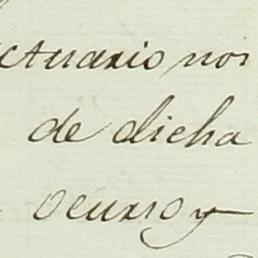 ctuario noi
de dicha
ocurso y